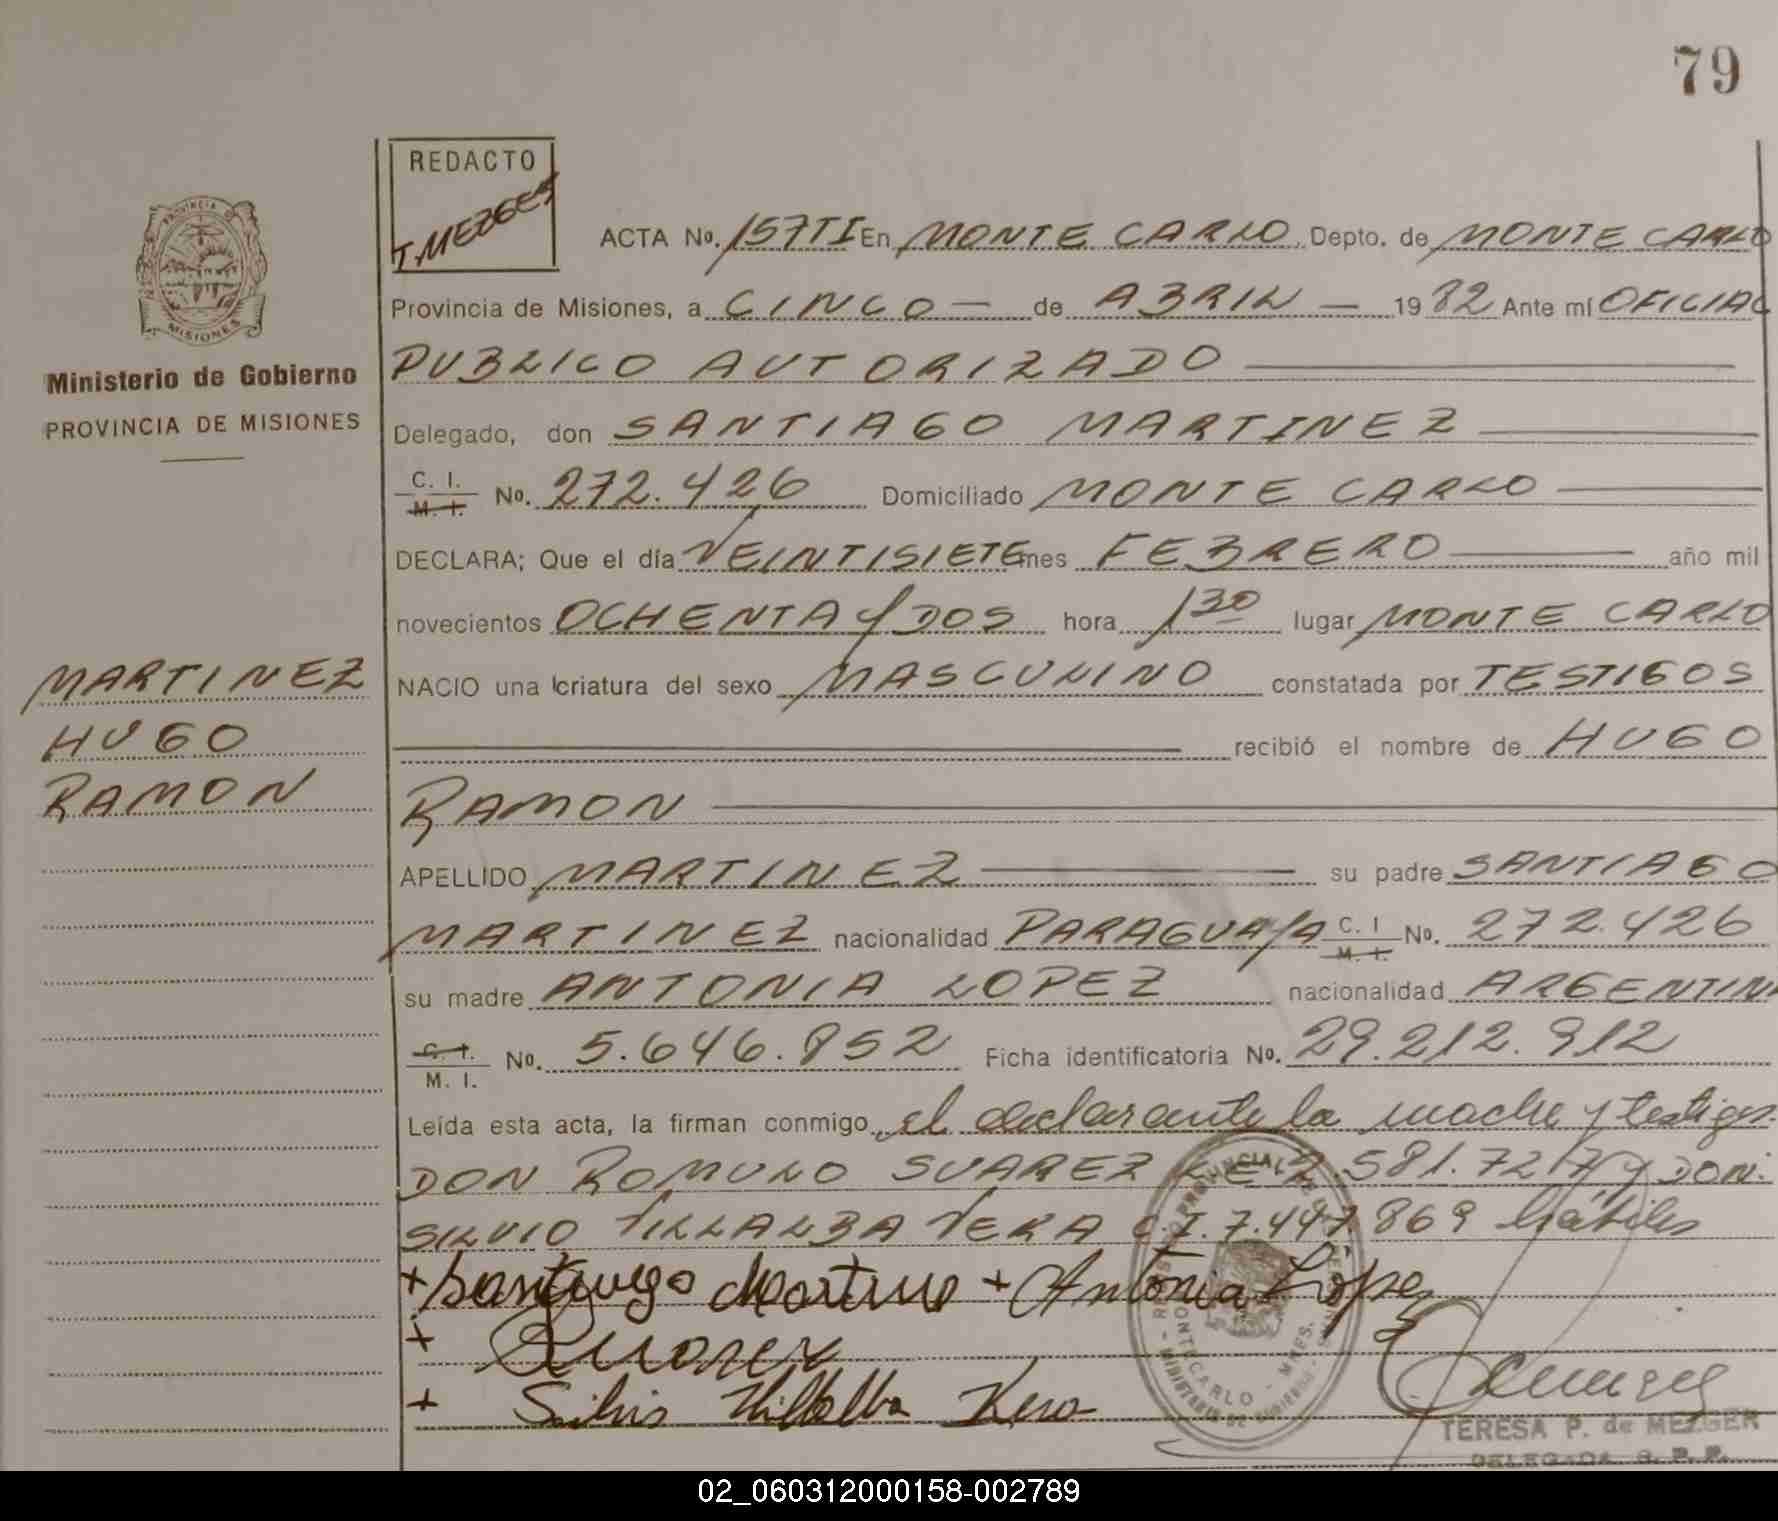 79
REDACTO
T. MEZGER
PROVINCIA DE
MISIONES
Ministerio de Gobierno
PROVINCIA DE MISIONES
ACTA No. 157TI En MONTE CARLO, Depto. de MONTE CARLO
Provincia de Misiones, a CINCO — de ABRIL — 1982 Ante mí OFICIAL
PUBLICO AUTORIZADO
Delegado, don SANTIAGO MARTINEZ
C. I. M. I. No. 272.426 Domiciliado MONTE CARLO
DECLARA; Que el día VEINTISIETE mes FEBRERO año mil
novecientos OCHENTA y DOS hora 1 30 lugar MONTE CARLO
MARTINEZ
HUGO
RAMON
NACIO una criatura del sexo MASCULINO constatada por TESTIGOS
recibió el nombre de HUGO
RAMON
APELLIDO MARTINEZ su padre SANTIAGO
MARTINEZ nacionalidad PARAGUAYA C. I M. I. No. 272.426
su madre ANTONIA LOPEZ nacionalidad ARGENTINA
C. I. M. I. No. 5.646.852 Ficha identificatoria No. 29.212.912
Leída esta acta, la firman conmigo, el declarante la madre y testigos
DON ROMULO SUAREZ L E 2.581.727 y DON:
SILVIO VILLALBA VERA C.I. 7.447.869 hábiles
+ Santiago Martines + Antonia López
+ Suarez
+ Silvio Villalba Vera
TERESA P. de MEZGER
DELEGADA R. P. P.
02_060312000158-002789